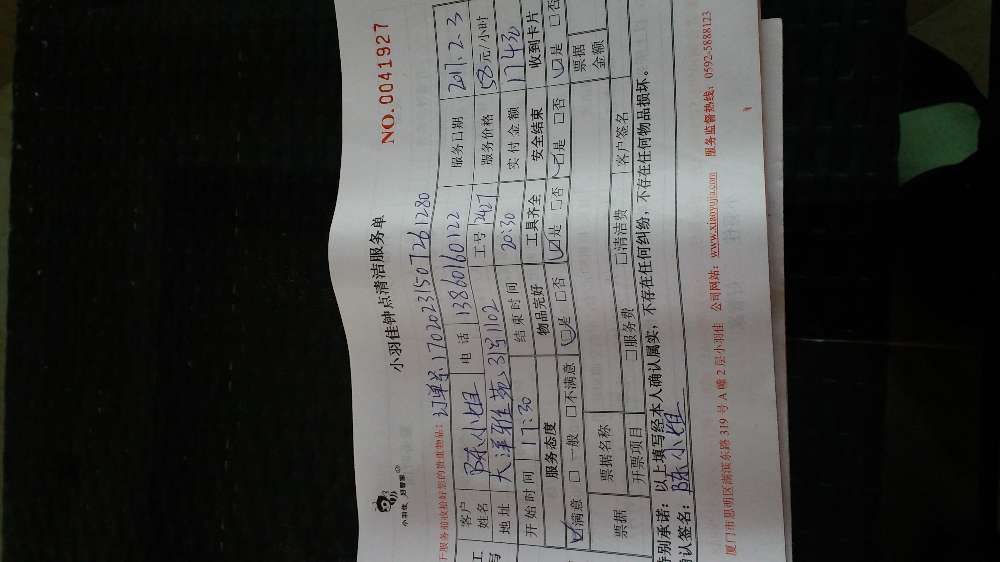 小羽佳 好管家
小羽佳钟点清洁服务单
NO.0041927
于服务前收拾好您的贵重物品: 订单号:17020231507261280
客户姓名 陈小姐 电话 13860160122 服务日期 2017.2.3
地址 大洋雅苑、31号1102 工号 2427 服务价格 58元/小时
开始时间 17:30 结束时间 20:30 实付金额 174元
服务态度 物品完好 工具齐全 安全结束 收到卡片
☑满意 □一般 □不满意 ☑是 □否 ☑是 □否 ☑是 □否 ☑是 □否
票据 票据名称 票据金额
开票项目 □服务费 □清洁费 客户签名
特别承诺: 以上填写经本人确认属实,不存在任何纠纷,不存在任何物品损坏。
确认签名: 陈小姐
厦门市思明区湖滨东路319号A幢2层小羽佳 公司网站: www.xiaoyujia.com 服务监督热线: 0592-5888123